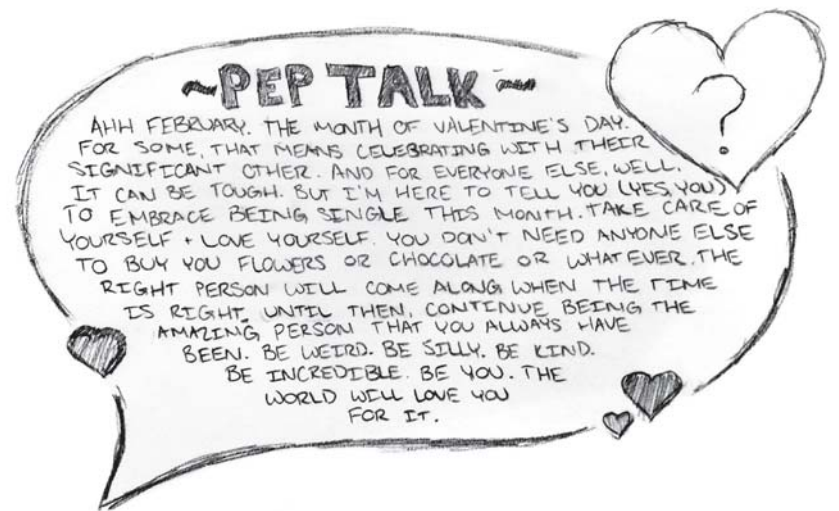 ~PEP TALK~
AHH FEBRUARY. THE MONTH OF VALENTINE'S DAY.
FOR SOME, THAT MEANS CELEBRATING WITH THEIR
SIGNIFICANT OTHER. AND FOR EVERYONE ELSE, WELL,
IT CAN BE TOUGH. BUT I'M HERE TO TELL YOU (YES, YOU)
TO EMBRACE BEING SINGLE THIS MONTH. TAKE CARE OF
YOURSELF + LOVE YOURSELF. YOU DON'T NEED ANYONE ELSE
TO BUY YOU FLOWERS OR CHOCOLATE OR WHATEVER. THE
RIGHT PERSON WILL COME ALONG WHEN THE TIME
IS RIGHT. UNTIL THEN, CONTINUE BEING THE
AMAZING PERSON THAT YOU ALWAYS HAVE
BEEN. BE WEIRD. BE SILLY. BE KIND.
BE INCREDIBLE. BE YOU. THE
WORLD WILL LOVE YOU
FOR IT.
?